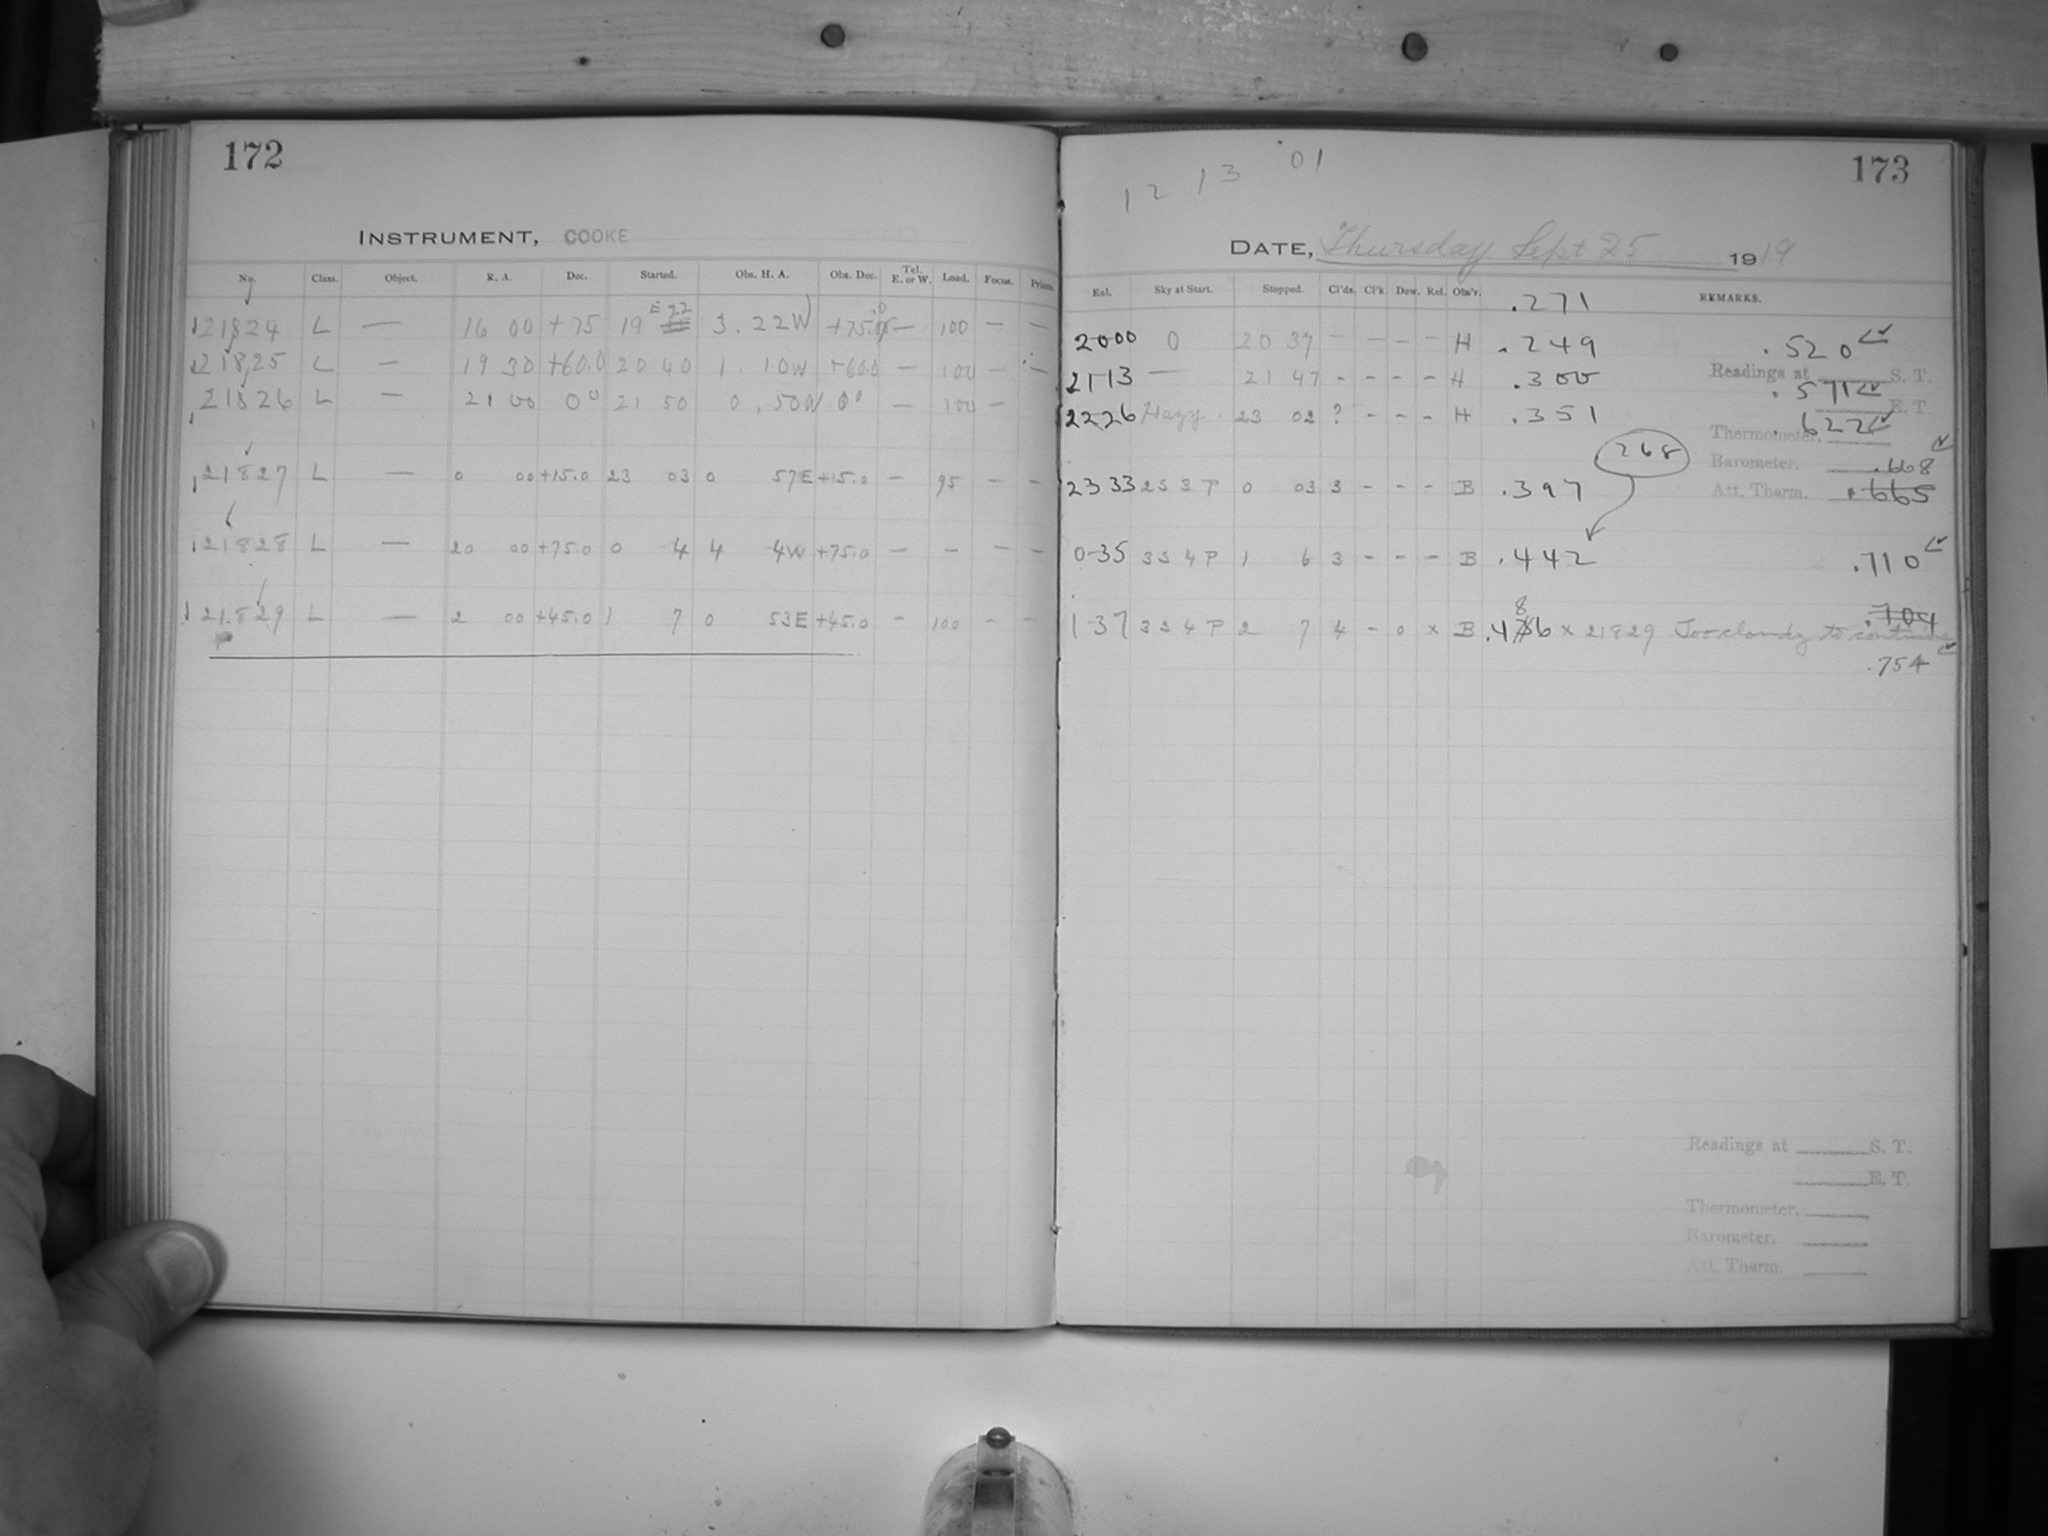 172
INSTRUMENT, COOKE
No. Class. Object. R. A. Dec. Started. Obs. H. A. Obs. Dec. Tel. E. or W. Load. Focus. Prisms.
21824 L — 16 00 +75 19 E 22 3. 22W +75.0 — 100 — —
21825 L — 19 30 +60.0 20 40 1. 10W +60.0 — 100 — —
21826 L — 21 00 0° 21 50 0, 50W 0° — 100 —
21827 L — 0 00 +15.0 23 03 0 57E +15.0 — 95 — —
21828 L — 20 00 +75.0 0 4 4 4W +75.0 — — — —
21829 L — 2 00 +45.0 1 7 0 53E +45.0 — 100 — —
12 13 01
173
DATE, Thursday Sept 25 1919
Exl. Sky at Start. Stopped. Cl'ds. Cl'k. Dew. Ref. Obs'r. .271 REMARKS.
2000 0 20 37 — — — — H .249 .520
Readings at S. T.
21-13 — 21 47 - - - - H .300 .571
E. T.
2226 Hazy. 23 02 ? - - - H .351 .622
Thermometer.
268
Barometer. .668
2333 2S 3P 0 03 3 - - - B .397
Att. Therm. .665
0-35 3S 4P 1 6 3 - - - B .442 .710
8
.704
1-37 3S 4P 2 7 4 - 0 x B .486 x 21829 Too cloudy to continue
.754
Readings at S. T.
E. T.
Thermometer.
Barometer.
Att. Therm.